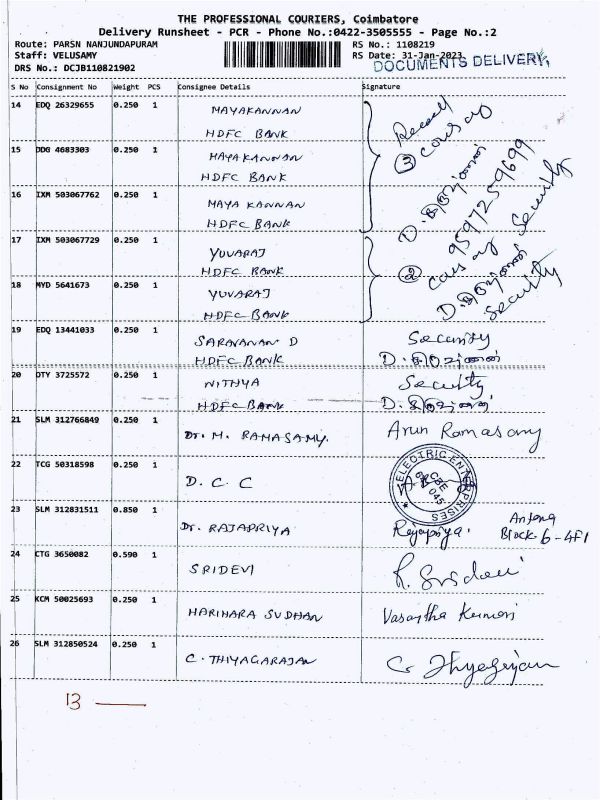 THE PROFESSIONAL COURIERS, Coimbatore
Delivery Runsheet - PCR - Phone No.:0422-3505555 - Page No.:2
Route: PARSN NANJUNDAPURAM
RS No.: 1108219
Staff: VELUSAMY
RS Date: 31-Jan-2023
DRS No.: DCJB110821902
DOCUMENTS DELIVERY,
S No Consignment No Weight PCS Consignee Details Signature
14 EDQ 26329655 0.250 1 MAYAKANNAN
HDFC BANK
15 DDG 4683303 0.250 1 MAYAKANNAN
HDFC BANK
③
16 IXM 503067762 0.250 1 MAYA KANNAN
HDFC BANK
9597259699
Security
17 IXM 503067729 0.250 1 YUVARAJ
HDFC BANK
②
18 MYD 5641673 0.250 1 YUVARAJ
HDFC BANK
Security
19 EDQ 13441033 0.250 1 SARAVANAN D Security
HDFC BANK
20 DTY 3725572 0.250 1 NITHYA Security
HDFC BANK
21 SLM 312766849 0.250 1 Dr. M. RAMASAMY. Arun Ramasamy
22 TCG 50318598 0.250 1 D. C. C
ELECTRIC ENTERPRISES
CBE
045
23 SLM 312831511 0.850 1 Dr. RAJAPRIYA Rajapriya.
Block-6-4F1
24 CTG 3650082 0.590 1 SRIDEVI R. Sridevi
25 KCM 50025693 0.250 1 HARIHARA SUDHAN Vasantha Kumari
26 SLM 312850524 0.250 1 C. THIYAGARAJAN C. Thyagarajan
13 —